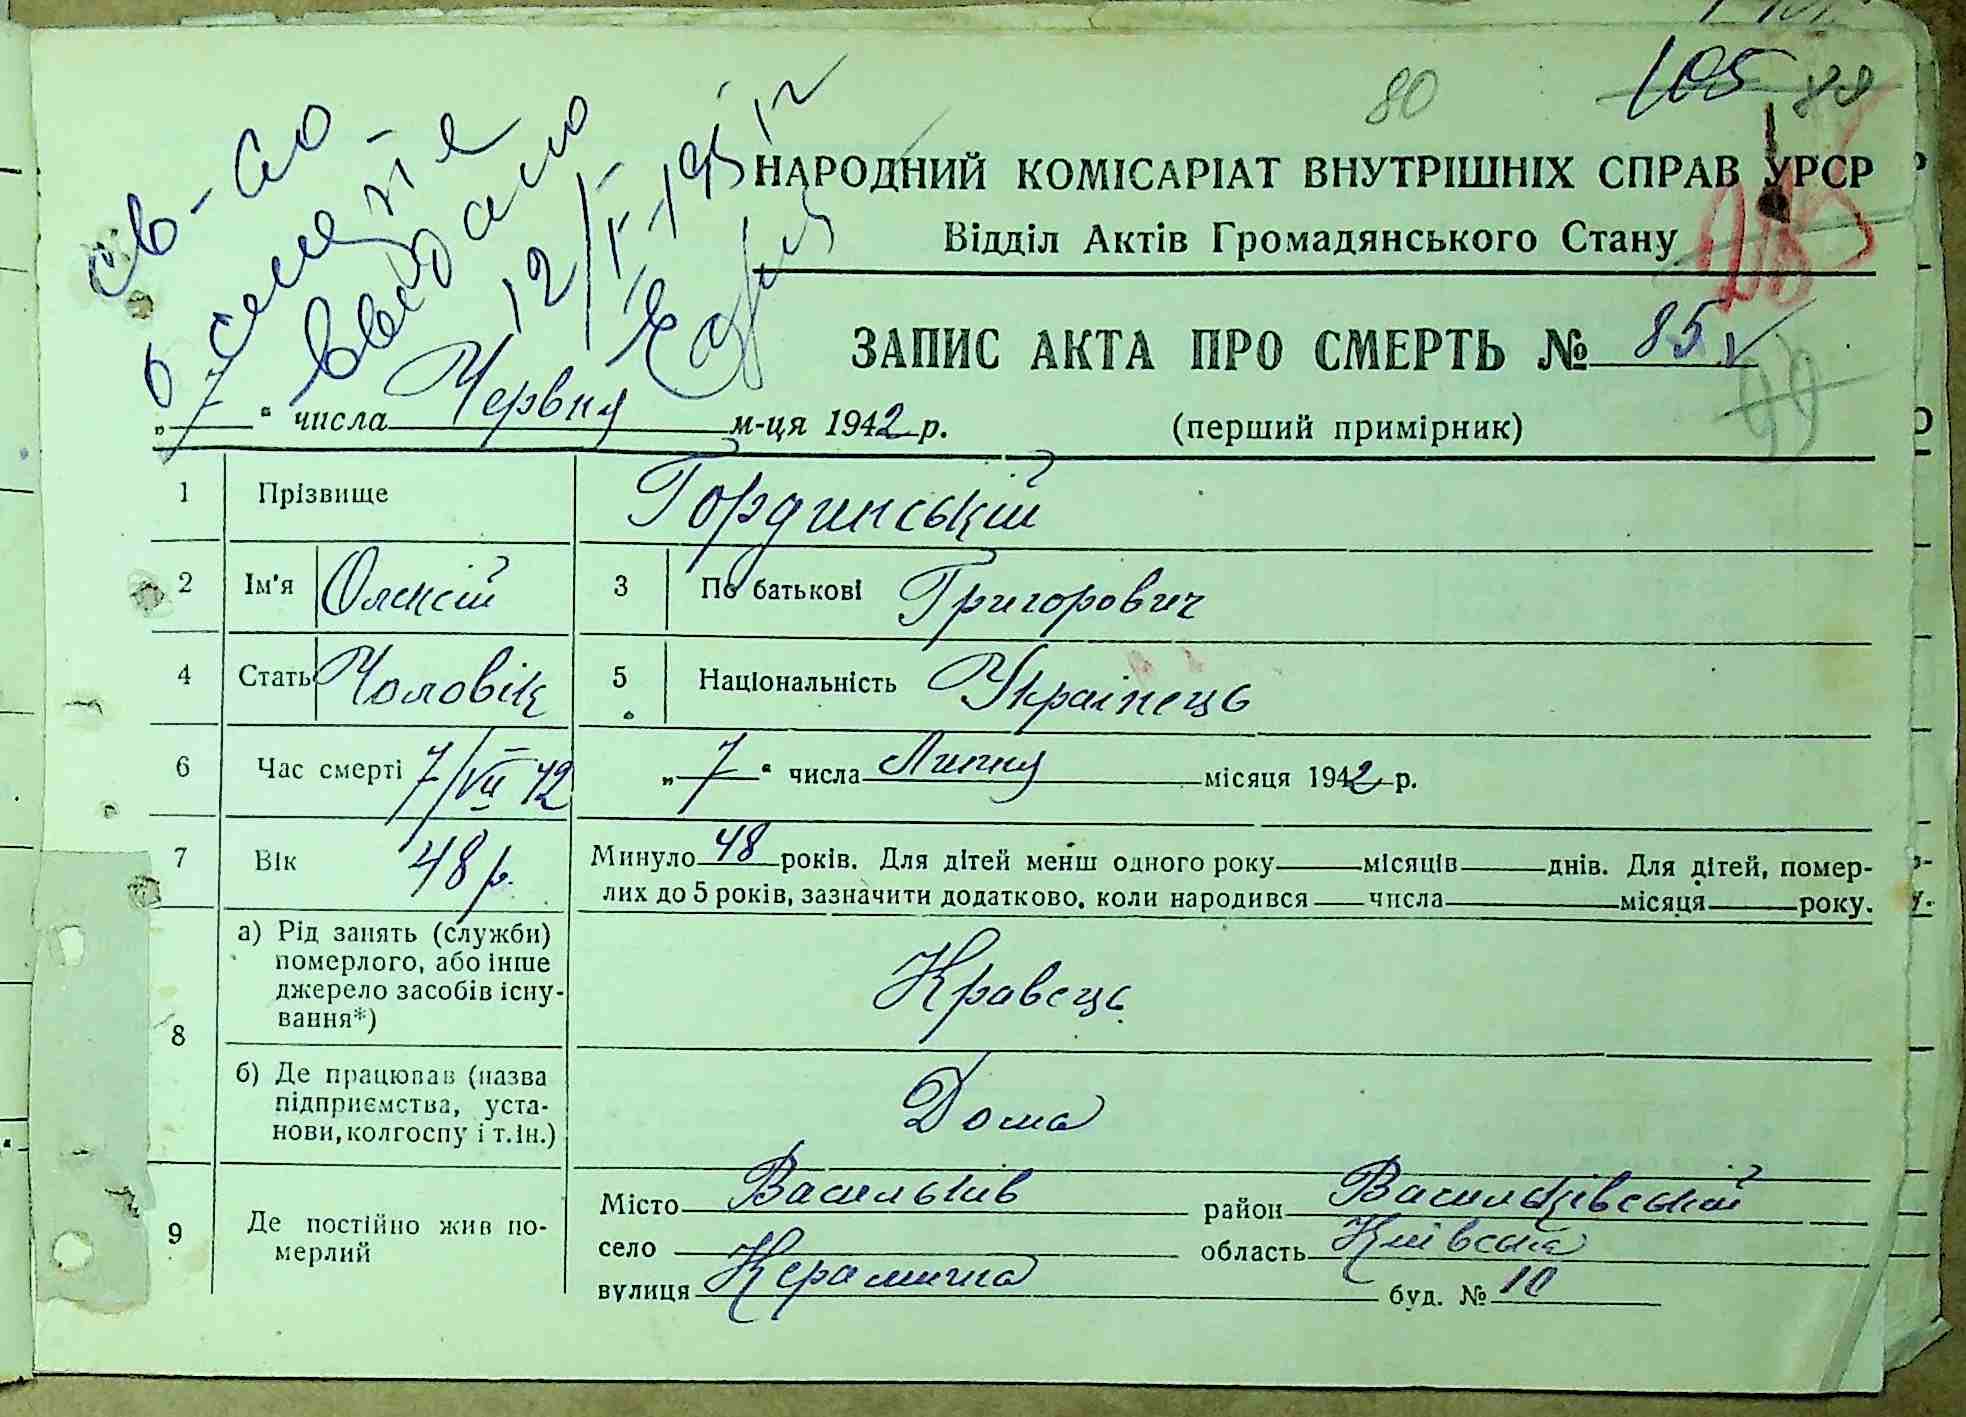 80 105 88
св-во
о смерте
выдано
12/I-195
НАРОДНИЙ КОМІСАРІАТ ВНУТРІШНІХ СПРАВ УРСР
Відділ Актів Громадянського Стану
ЗАПИС АКТА ПРО СМЕРТЬ № 85
„7“ числа Червня м-ця 1942 р. (перший примірник)
1 Прізвище Гординський
2 Ім'я Олексій 3 По батькові Григорович
4 Стать Чоловік 5 Національність Українець
6 Час смерті 7/VII 42 „7“ числа Липня місяця 1942 р.
7 Вік 48 р. Минуло 48 років. Для дітей менш одного року місяців днів. Для дітей, помер-
лих до 5 років, зазначити додатково, коли народився числа місяця року.
8 а) Рід занять (служби)
померлого, або інше
джерело засобів існу-
вання*) Кравець
б) Де працював (назва
підприємства, уста-
нови, колгоспу і т.ін.) Дома
9 Де постійно жив по-
мерлий
Місто Васильків район Васильківський
село область Київська
вулиця Керамична буд. № 10